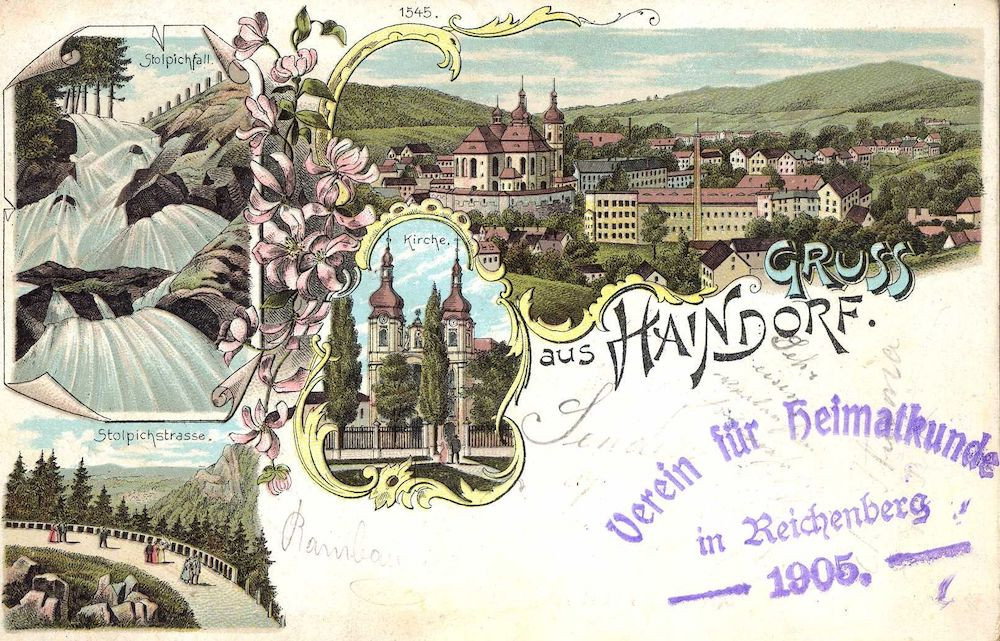 1545.
Stolpichfall.
Kirche.
GRUSS
aus HAINDORF.
Stolpichstrasse.
Verein für Heimatkunde
in Reichenberg
1905.